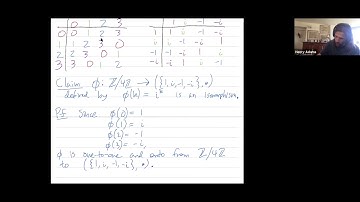 0 1 2 3
0 0 1 2 3
1 1 2 3 0
2 2 3 0 1
3 3 0 1 2
1 i -1 -i
1 1 i -1 -i
i i -1 -i 1
-1 -1 -i 1 i
-i -i 1 i -1
Claim φ: ℤ/4ℤ → ({1, i, -1, -i}, •)
defined by φ(k) = i^k is an isomorphism.
Pf Since φ(0) = 1
φ(1) = i
φ(2) = -1
φ(3) = -i,
φ is one-to-one and onto from ℤ/4ℤ
to ({1, i, -1, -i}, •).
Henry Adams